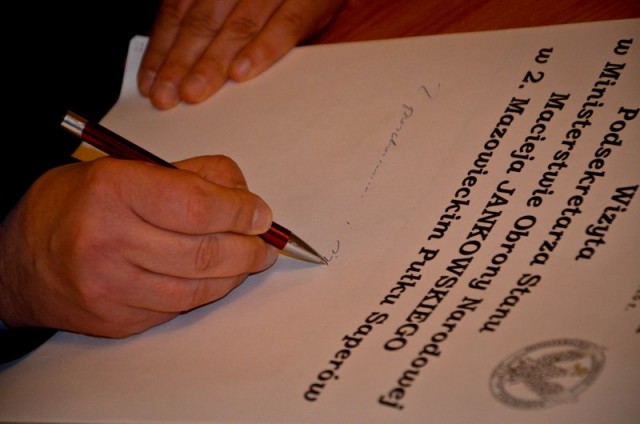 Wizyta
Podsekretarza Stanu
w Ministerstwie Obrony Narodowej
Macieja JANKOWSKIEGO
w 2. Mazowieckim Pułku Saperów